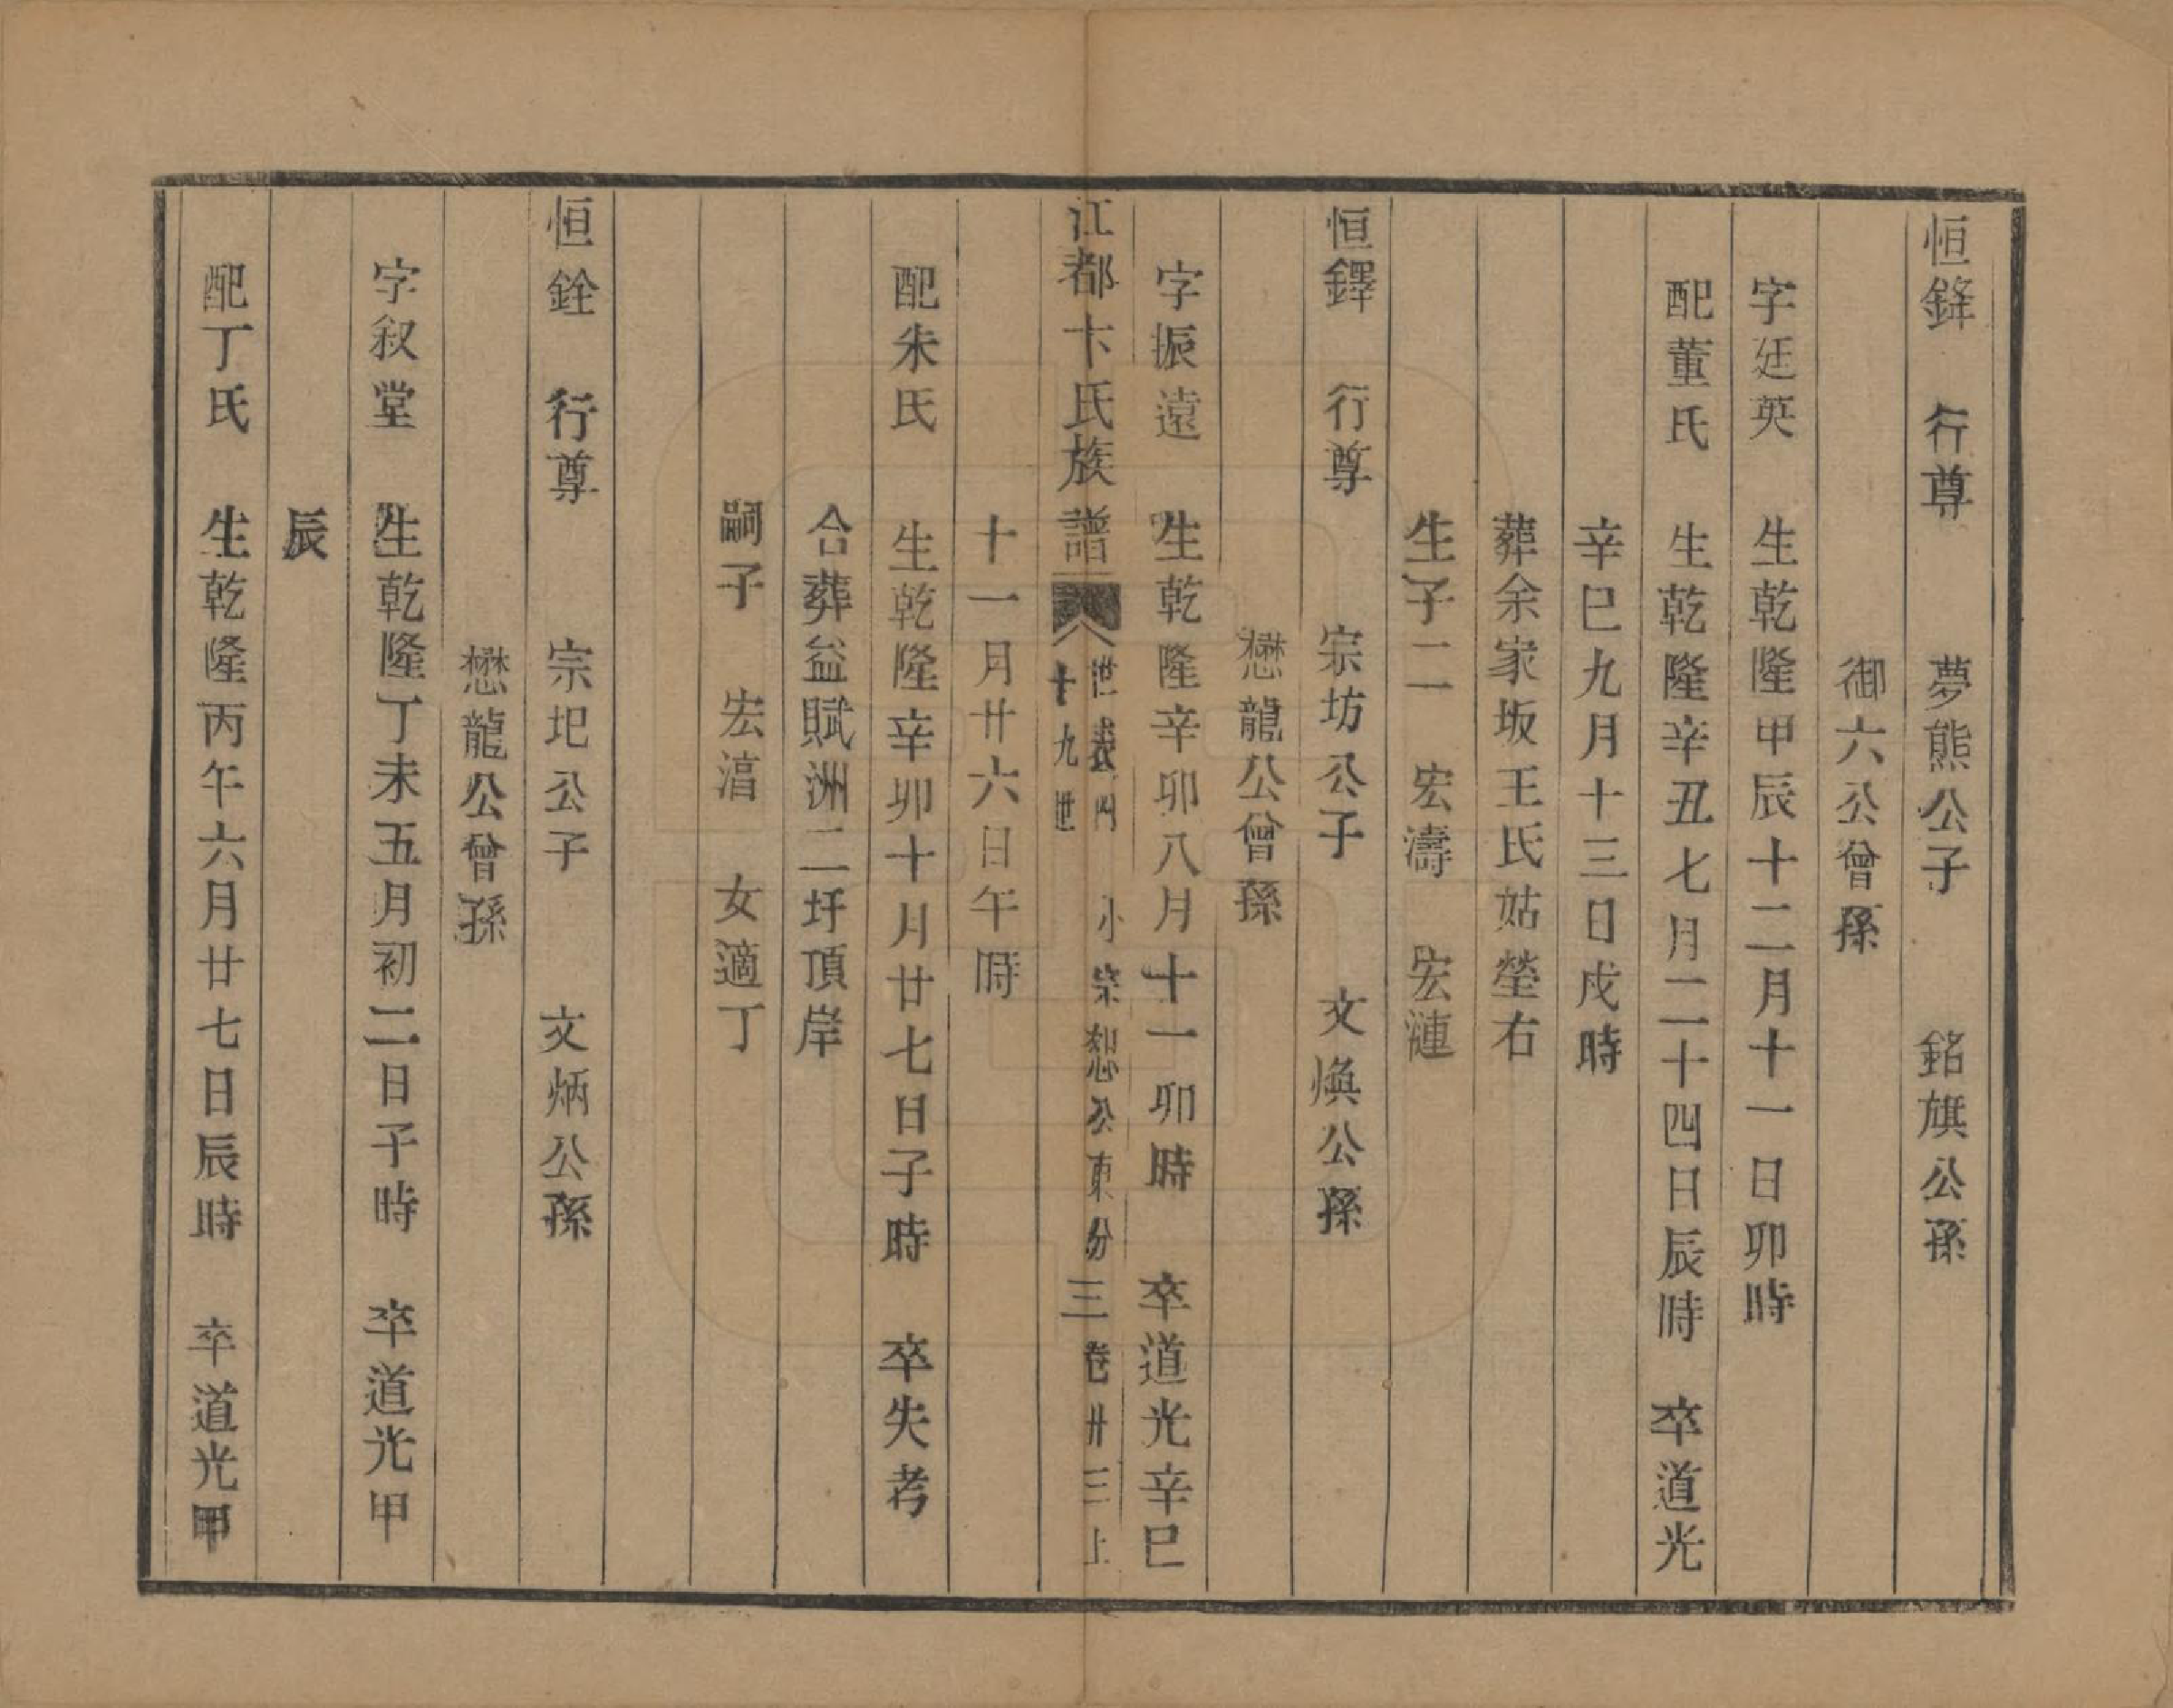 恒鋒　行尊　夢熊公子　銘旗公孫
御六公曾孫
字廷英　生乾隆甲辰十二月十一日卯時
配董氏　生乾隆辛丑七月二十四日辰時　卒道光
辛巳九月十三日戌時
葬余家坂王氏姑塋右
生子二　宏濤　宏漣
恒鐸　行尊　宗坊公子　文煥公孫
懋龍公曾孫
字振遠　生乾隆辛卯八月十一卯時　卒道光辛巳
江都卞氏族譜　世表四　十九世　小宗恕公東分　三　卷卅三上
十一月廿六日午時
配朱氏　生乾隆辛卯十月廿七日子時　卒失考
合葬益賦洲二圩頂岸
嗣子　宏湻　女適丁
恒銓　行尊　宗圯公子　文炳公孫
懋龍公曾孫
字叙堂　生乾隆丁未五月初二日子時　卒道光甲
辰
配丁氏　生乾隆丙午六月廿七日辰時　卒道光甲